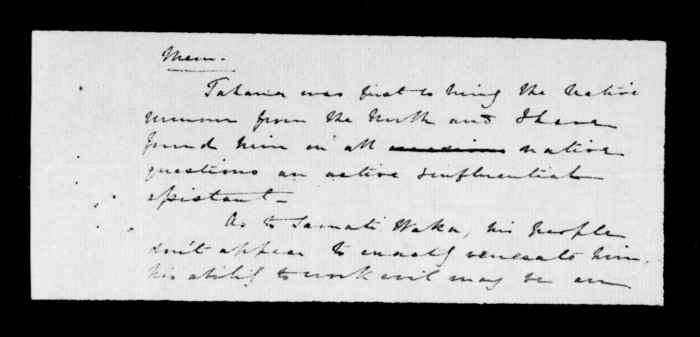 Mem.
Takana was first to bring the Native
rumour from the North and I have
found him on all native
questions an active & influential
assistant—
As to Tamati Waka, his people
don't appear to exactly venerate him,
his ability to work evil may be an